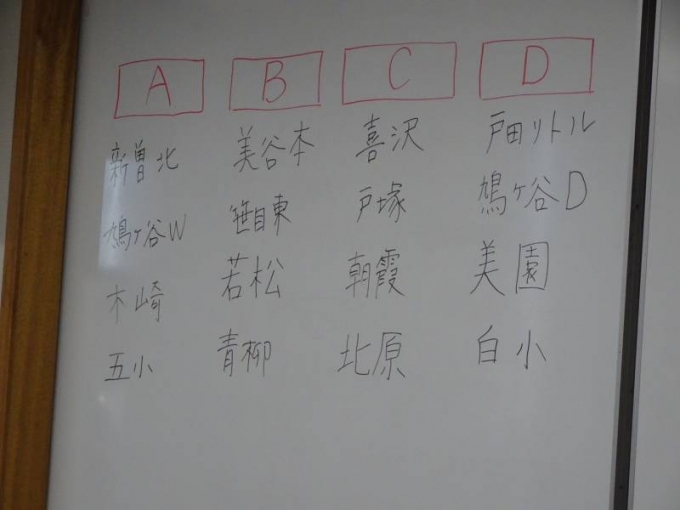 A B C D
新曽北 美谷本 喜沢 戸田リトル
鳩ヶ谷W 笹目東 戸塚 鳩ヶ谷D
木崎 若松 朝霞 美園
五小 青柳 北原 白小